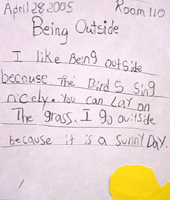 April 28 2005 Room 110
Being Outside
I like Being outside
because The Bird s sing
nicely. You can Lay on
The grass. I go outside
because it is a sunny Day.